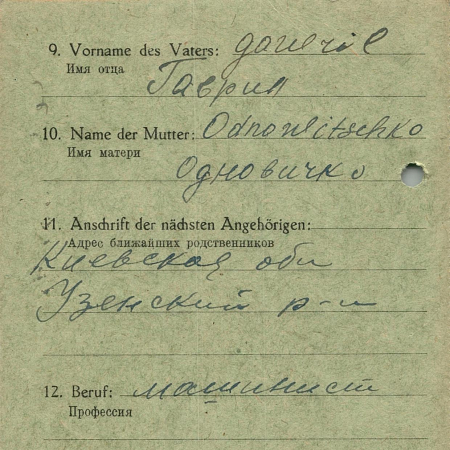 9. Vorname des Vaters: gavril
Имя отца
Гаврил
10. Name der Mutter: Odnowitschko
Имя матери
Одновичко
11. Anschrift der nächsten Angehörigen:
Адрес ближайших родственников
Киевская обл
Узенский р-н
12. Beruf: машинист
Профессия